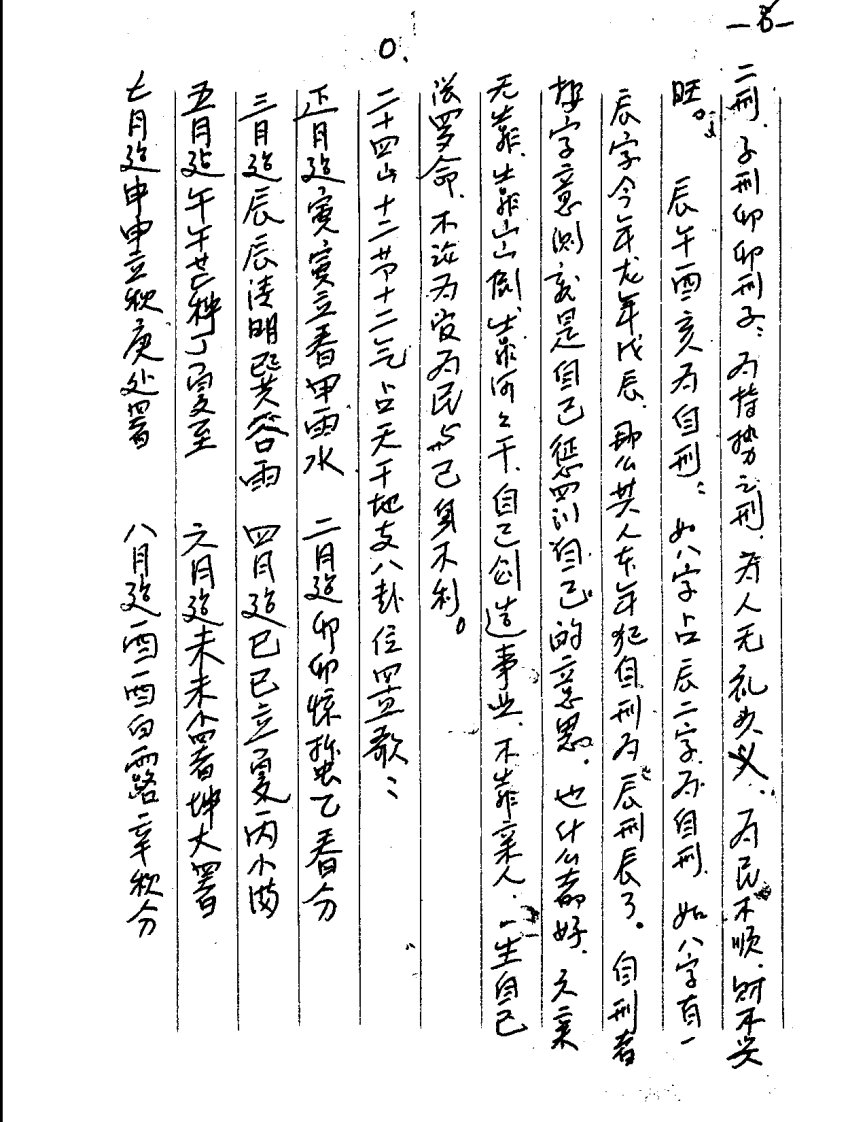 —8—
二刑．子刑卯卯刑子：为恃势之刑．为人无礼失义．为民不顺．财不兴
旺。辰午酉亥为自刑：如八字占辰二字．为自刑．如八字有一
辰字今年龙年戊辰．那么其人本年犯自刑为辰刑辰了。自刑者
按字意测就是自己惩罚自己的意思．也什么都好．六亲
无靠．靠山山倒．靠河河干．自己创造事业．不靠亲人．一生自己
没罗命．不论为官为民与己身不利。
二十四山十二节十二气占天干地支八卦位置歌：
正月建寅寅立春甲雨水 二月建卯卯惊蛰乙春分
三月建辰辰清明巽谷雨 四月建巳巳立夏丙小满
五月建午午芒种丁夏至 六月建未未小暑坤大暑
七月建申申立秋庚处署 八月建酉酉白露辛秋分